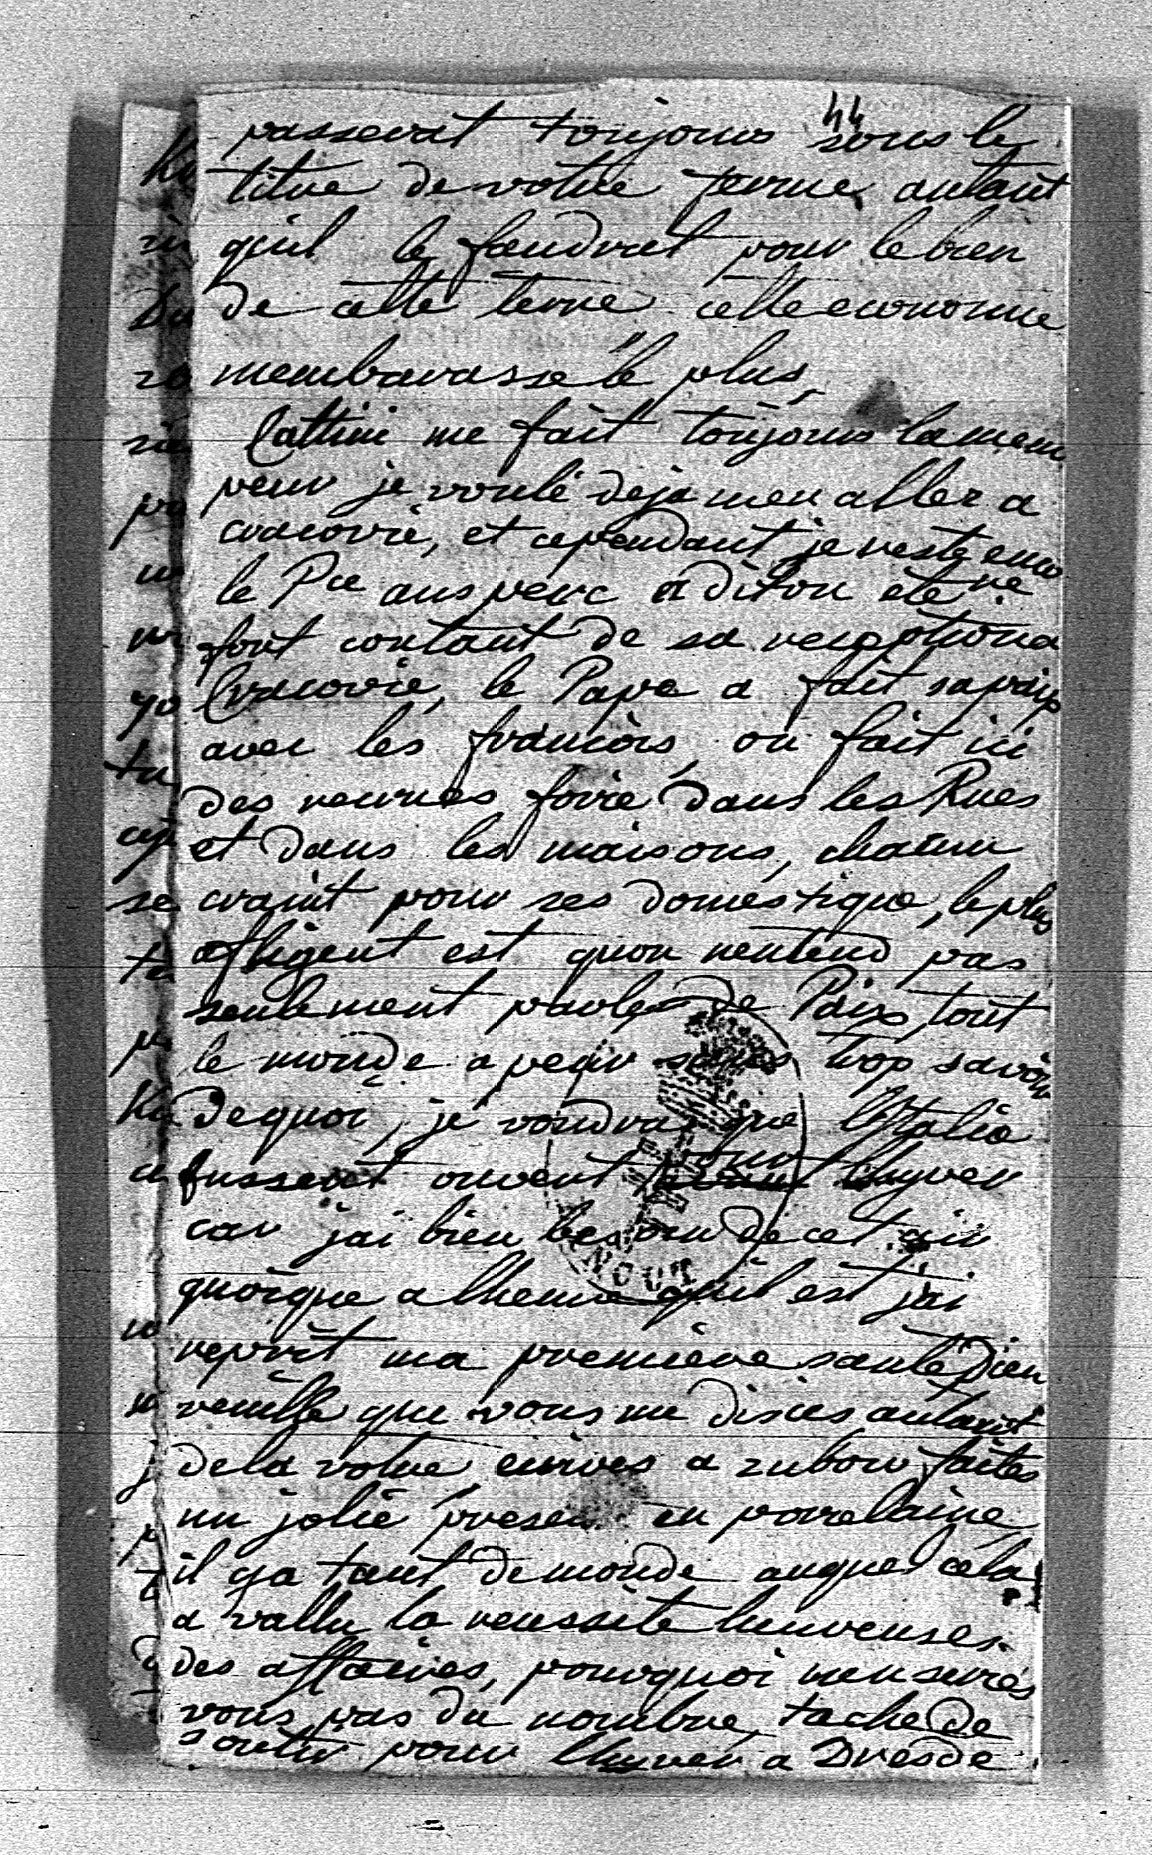 44
passerat toujours sous le
titre de votre ferme autant
quil le faudrat pour le bien
de cette terre cette economie
membarasse le plus,
Cattini me fait toujours la mem
peur je voulé deja men aller a
cracovie, et cependant je reste enco
re
le Pce auspere a diton ete
fort contant de sa reception a
Cracovie, le Papa a fait sa paix
avec les francois, on fait ici
des recrues foire dans les Rues
et dans les maisons, chacun
craint pour ses domestique, le plus
afligent est quon nentend pas
seulement parler de Paix, tout
le monde a peur sans trop savoir
de quoi, je voudrai que l'Italie
fusserat ouvert pour lhyver
car jai bien besoin de cet air
quoique a lheure quil est jai
reprit ma premiere santé Dieu
veuille que vous me disies autant
de la votre, ecrives a zubow faites
un jolie present en porcelaine
il ya tant de monde auquel cela
a vallu la reussite heureuses
des affaires, pourquoi nen series
vous pas du nombre, tache de
sortir pour lhyver a Dresde